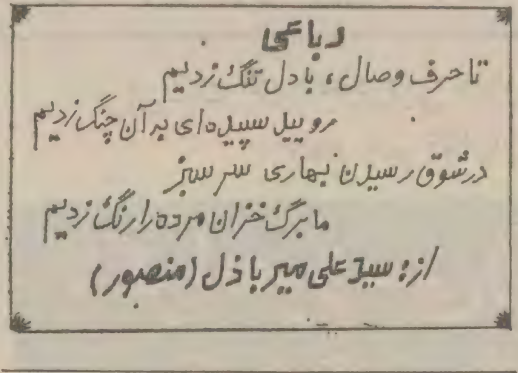 رباعی
تا حرف وصال، با دل تنگ زدیم
روییل سپیده‌ای به آن چنگ زدیم
در شوق رسیدن بهاری سرسبز
ما برگ خزان مرده را رنگ زدیم
از: سید علی میرباذل (منصور)